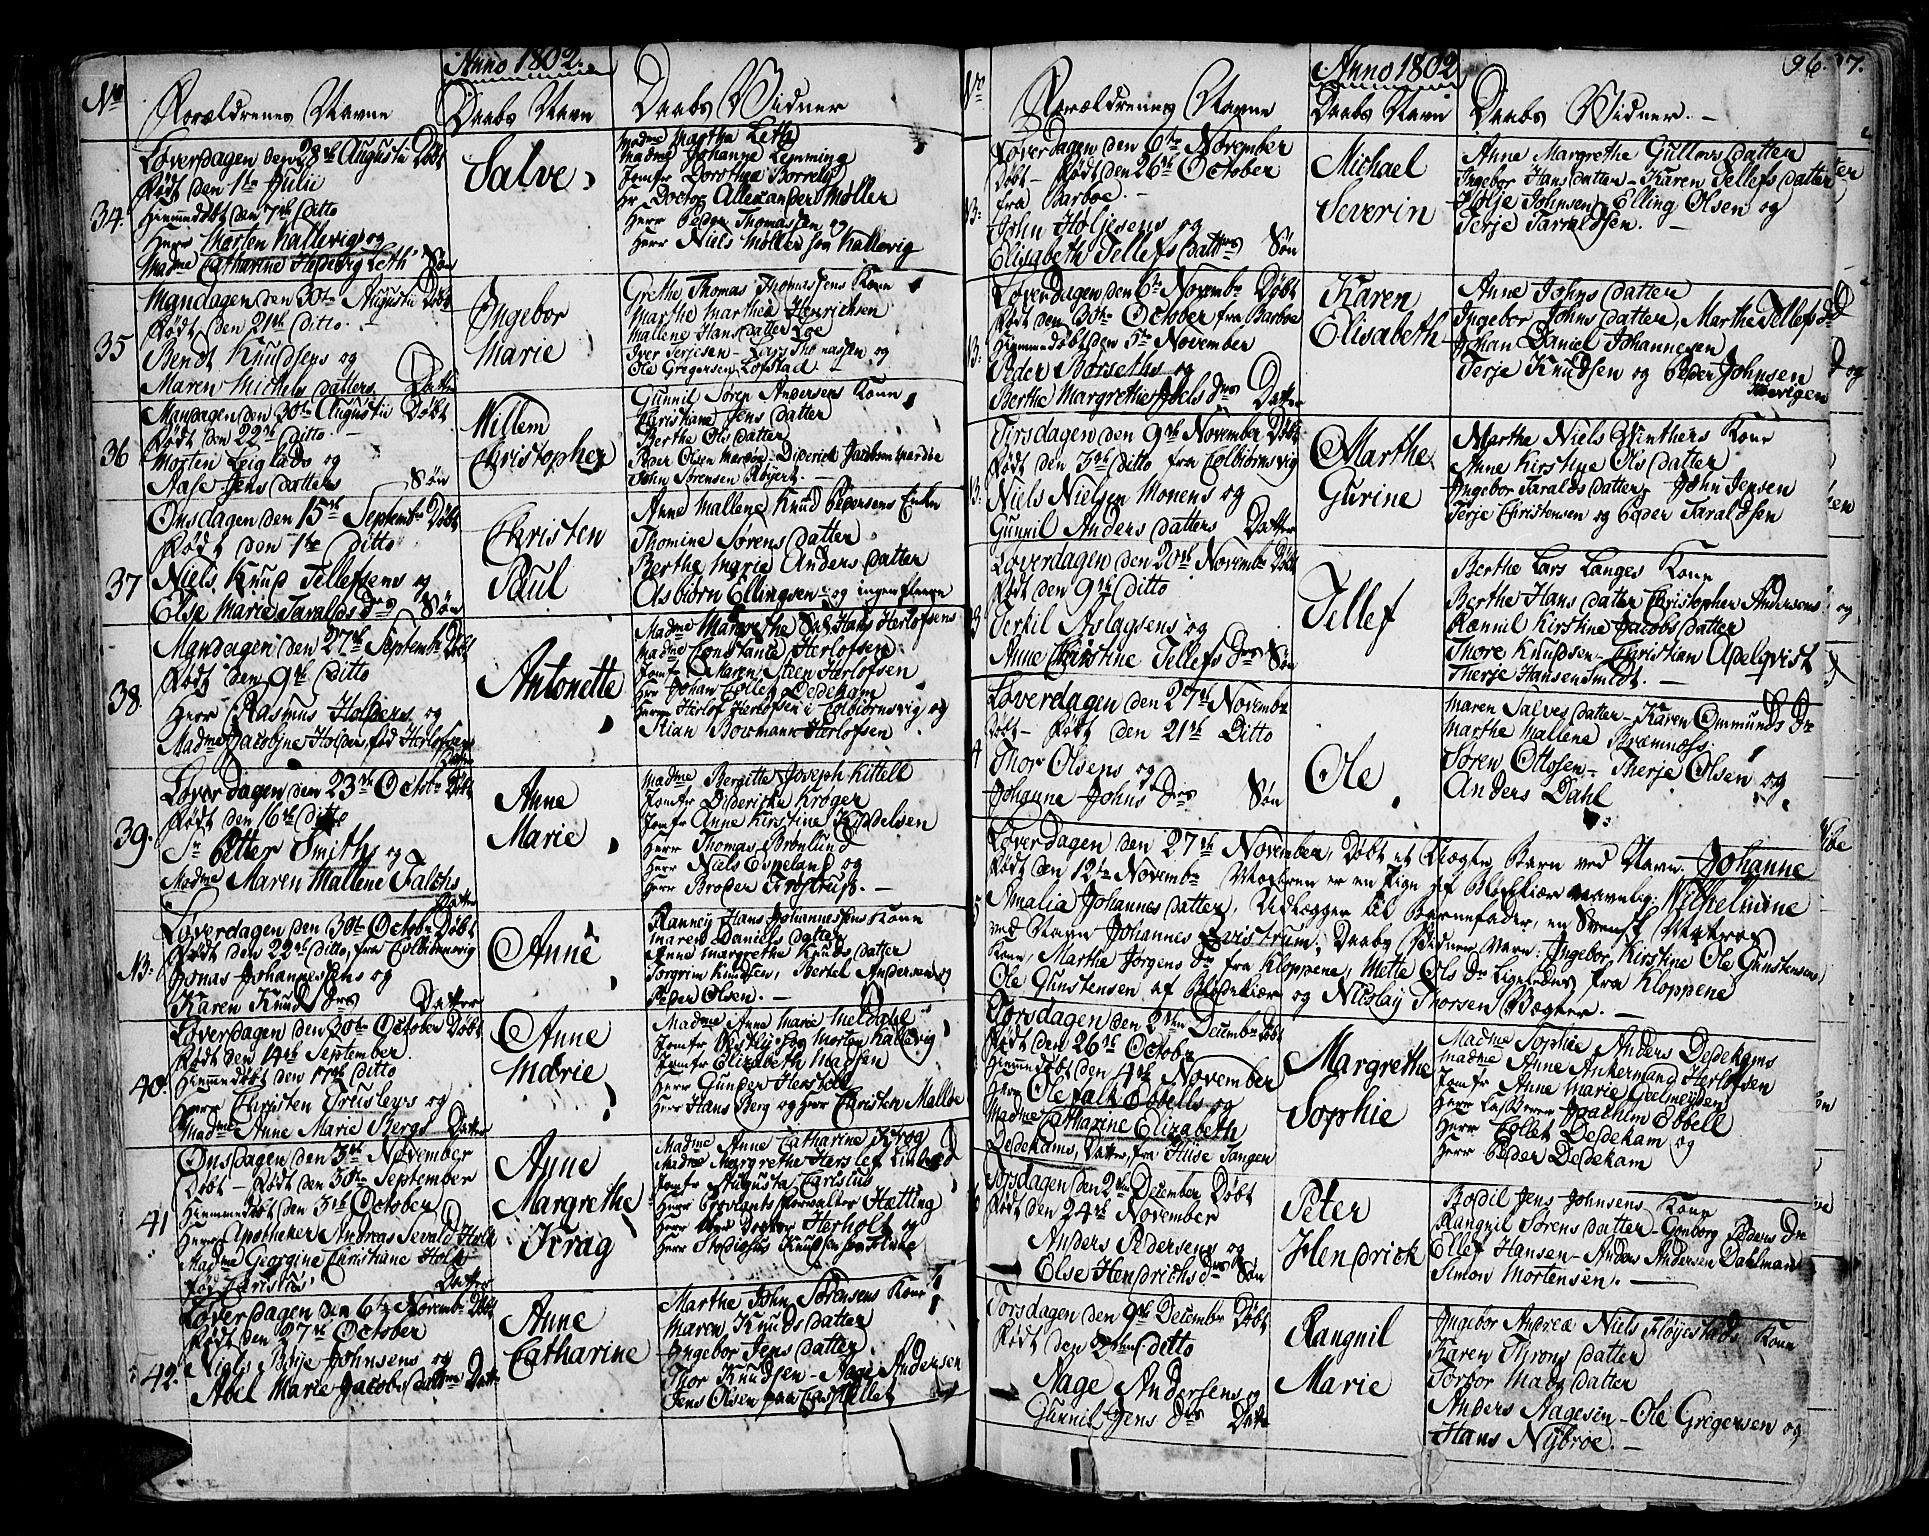 Anno 1802.
No
Forældrenes Navne
Daabs Navn
Daabs Vidner
34.
Løverdagen den 28de Augusti Døbt
Født den 1te Julii
Hiemmedøbt den 7de Ditto
Herr Morten Kallevig og
Madme Catharine Hedevig Leth Søn
Salve
Madme Martha Leth
Madme Johanne Lemming
Jomfr Dorothea Borrely
Hr Doctor Allexander Møller
Herr Peder Thomassen og
Herr Niels Møller Kallevig
35
Mandagen den 30te Augusti Døbt
Født den 21de Ditto.
Bendt Knudsens og
Maren Michelsdatters Datter
Ingebor
Marie
Grethe Thomas Thomassens Kone
Marthe Marthea Henrichsen
Mallene Hansdatter Loe
Iver Terjesen - Lars Thomassen og
Ole Gregersen Lofstad
36
Mandagen den 30te Augusti Døbt
Født den 22de Ditto.
Morten Leiglads og
Aase Jensdatters Søn
Willem
Christopher
Gunnil Søren Andersens Kone
Christiane Jensdatter
Berthe Olsdatter
Peder Olsen Merdøe - Diderich Jacobsen Merdøe
John Sørensen Røyert.
37
Onsdagen den 15de Septembr Døbt
Født den 1te Ditto
Niels Knud Tellefsens og
Else Marie Taralds Drs Søn
Christen
Paul
Anne Mallene Knud Pedersens Enke
Thomine Sørensdatter
Berthe Marie Andersdatter
Asbiørn Ellingsen og ingen fleere
38.
Mandagen den 27de Septembr Døbt
Født den 9de Ditto
Herr Rasmus Holpers og
Madme Jacobine Holper fød Herlofsen
Datter
Antonette
Madme Margrethe Sal. Hans Herlofsens
Madme Constance Herlofsen
Jomfr Maren Steen Herlofsen
Hr Johan Collet Dedekam
Herr Herlof Herlofsen i Colbiørnsvig og
Stian Bowmann Herlofsen
39.
Løverdagen den 23de Octobr Døbt
Født den 16de Ditto
Sr Petter Smiths og
Madme Maren Mallene Falchs
Datter
Anne
Marie
Madme Bergitte Joseph Kittell
Jomfr Dideriche Krøger
Jomfr Anne Kirstine Kiddelsen
Herr Thomas Brønlund
Herr Niels Espeland og
Herr Broder Frostrup.
N3:
Løverdagen den 30te Octobr Døbt
Født den 22de Ditto, fra Colbiørnsvig
Jonas Johannesens og
Karen Knuds Drs Datter
Anne
Ranney Hans Johannesens Kone
Maren Danielsdatter
Anne Margrethe Knudsdatter
Torgrim Knudsen, Bertel Andersen og
Peder Olsen.
40.
Løverdagen den 30te October Døbt
Født den 14de September.
Hiemmedøbt den 17de Ditto
Herr Christen Truslews og
Madme Anne Marie Bergs Datter
Anne
Marie
Madme Anne Marie Meldahl
Jomfr Morten Kallevig
Jomfr Elizabeth Madsen
Herr Gunder Herstell
Herr Hans Berg og Herr Christen Malløe
41
Onsdagen den 3de November
Døbt - Født den 30te September
Hiemmedøbt den 3de October
Herr Apotheker Andreas Sevald Holk
Madme Georgine Christiane Holk
fød Carlslus
Datter
Anne
Margrethe
Krag
Madme Anne Catharine Krog
Madme Margrethe Herslef Lined
Jomfr Augusta Carlslus
Herr Proviants Forvalter Hetting
Herr Doctor Herholt og
Herr Studiosus Knudsen
42.
Løverdagen den 6te Novembr Døbt
Født den 27de October
Niels Boje Johnsens og
Abel Marie Jacobsdatters Datter
Anne
Catharine
Marthe John Sørensens Kone
Maren Knudsdatter
Ingebor Jensdatter.
Thor Knudsen - Aage Andersen
Jens Olsen paa Castellet
96.
No
Anno 1802
Forældrenes Navne
Daabs Navn
Daabs Vidner.
Løverdagen den 6te November
Døbt - Født den 26de October
fra Barboe.
John Holjesens og
Elisabeth Tellefsdatters Søn
Michael
Severin
Anne Margrethe Gulloversdatter
Ingebor Hansdatter - Karen Tellefsdatter
Holje Johnsen, Elling Olsen og
Terje Tarraldsen.
Løverdagen den 6te Novembr Døbt
Født den 30te October fra Barboe
Hiemmedøbt den 5te November
Peder Børseths og
Berthe Margrethe Abels Drs Datter
Karen
Elisabeth
Anne Johnsdatter
Ingebor Johnsdatter, Marthe Tellefs Dr
Johan Daniel Johannesen
Terje Knudsen og Peder Johnsen
Tirsdagen den 9de November Døbt
Født den 3de Ditto fra Colbiørnsvig
Niels Nielsen Monens og
Gunnil Andersdatters Datter
Marthe
Gurine
Marthe Niels Winthers Kone
Anne Kirstine Olsdatter
Ingebor Taraldsdatter - John Jensen
Terje Christensen og Peder Taraldsen
Løverdagen den 20de Novembr Døbt
Født den 9de Ditto
Terkil Aslagsens og
Anne Christine Tellefs Drs Søn
Tellef
Berthe Lars Langes Kone
Berthe Hansdatter Christopher Andersens
Rannil Kirstine Jacobsdatter
Thore Knudsen - Christian Apelqvist
Therje Hansen Smidt.
Løverdagen den 27de Novembr
Døbt - Født den 21de Ditto
Thor Olsens og
Johanne Johns Drs Søn
Ole
Maren Salvesdatter - Karen Ommunds Dr
Marthe Mallene Bræmnæss
Søren Ottosen - Therje Olsen og
Anders Dahl
Løverdagen den 27de November, Døbt et Uægte Barn ved Navn Johanne
Født den 12te Novembr Moderen er en Pige af Blødekiær navnlig: Wilhelmine
Amalia Johannesdatter, Udlægger til Barnefader, en Svensk Matros
ved Navn Johannes Qvistrum; Daabs Vidner vare: Ingebor Kirstine Ole Gunstensens
Kone, Marthe Jørgens Dr fra Kloppene, Mette Ols Dr Ligeledes fra Kloppene
Ole Gunstensen af Blødekiær og Nicolay Thorsen Bøgner.
Torsdagen den 2den Decembr Døbt
Født den 26de Octobr
Hiemmedøbt den 4de November
Herr Ole Falk Ebbells og
Madme Catharine Elizabeth
Dedekams, Datter, fra Hisse Tangen
Margrethe
Sophie
Madme Sophie Anders Dedekams
Madme Anne Ankermand Herlofsen
Jomfr Anne Marie Gielmeyden
Herr Joachim Ebbell
Herr Collet Dedekam og
Herr Peder Dedekam
Torsdagen den 2den December Døbt
Født den 24de November
Anders Pedersens og
Else Hendrichs Drs Søn
Peter
Hendrick
Bodil Jens Johnsens Kone
Rangnil Sørensdatter - Gonborg Peders Dr
Ellef Hansen - Anders Andersen Dahlman
Simon Mortensen.
Torsdagen den 9de Decembr Døbt
Født den 2den Ditto
Aage Andersens og
Gunnil Jens Drs Datter
Rangnil
Marie
Ingebor Andrea Niels Fløyestads Kone
Karen Thronsdatter
Torbor Madsdatter
Anders Aagesen - Ole Gregersen og
Hans Nybroe.